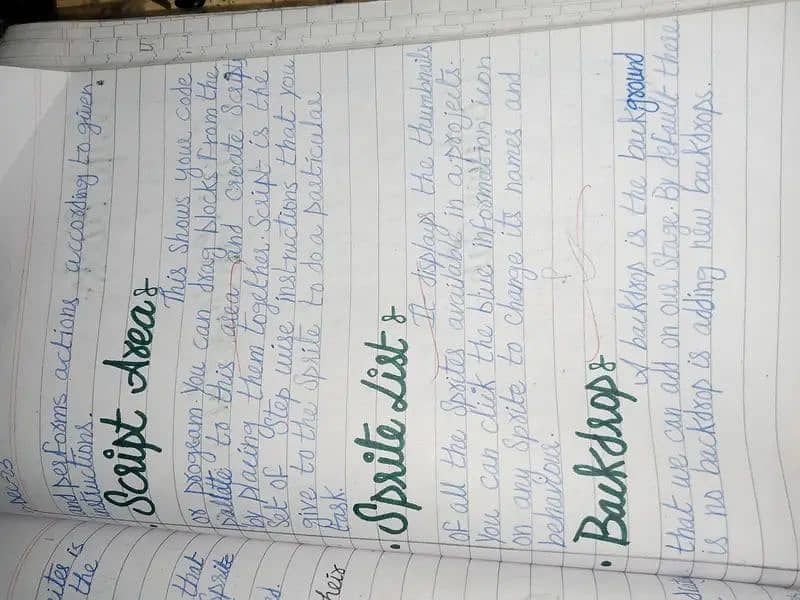 and performs actions according to given
instructions.
• Script Area :-
This shows your code
or program. You can drag blocks from the
pallite to this area and create script
by placing them together. Script is the
Set of Step wise instructions that you
give to the Sprite to do a particular
task.
• Sprite List :-
It displays the thumbnails
of all the Sprites available in a projects.
You can click the blue information icon
on any Sprite to change its names and
behaviour.
• Backdrop :-
A backdrop is the background
that we can add on our Stage. By default there
is no backdrop is adding new backdrops.
ites is
the
that
sprite
ed.
heir